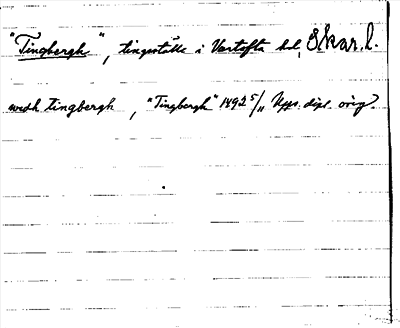 "Tingbergh", tingställe i Vartofta hd, Skar. l.
wedh tingbergh, "Tingbergh" 1492 5/11 Upps. dipl. orig.